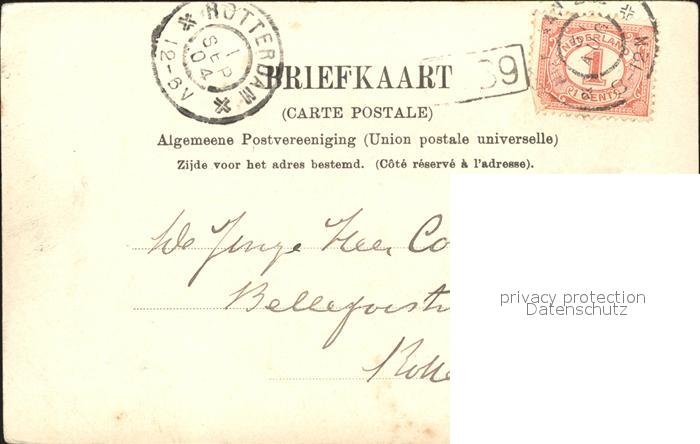 ROTTERDAM
1 SEP 04
12-6V
69
NEDERLAND
1
CENT
BRIEFKAART
(CARTE POSTALE)
Algemeene Postvereeniging (Union postale universelle)
Zijde voor het adres bestemd. (Côté réservé à l'adresse).
De Jonge Heer Co
privacy protection
Datenschutz